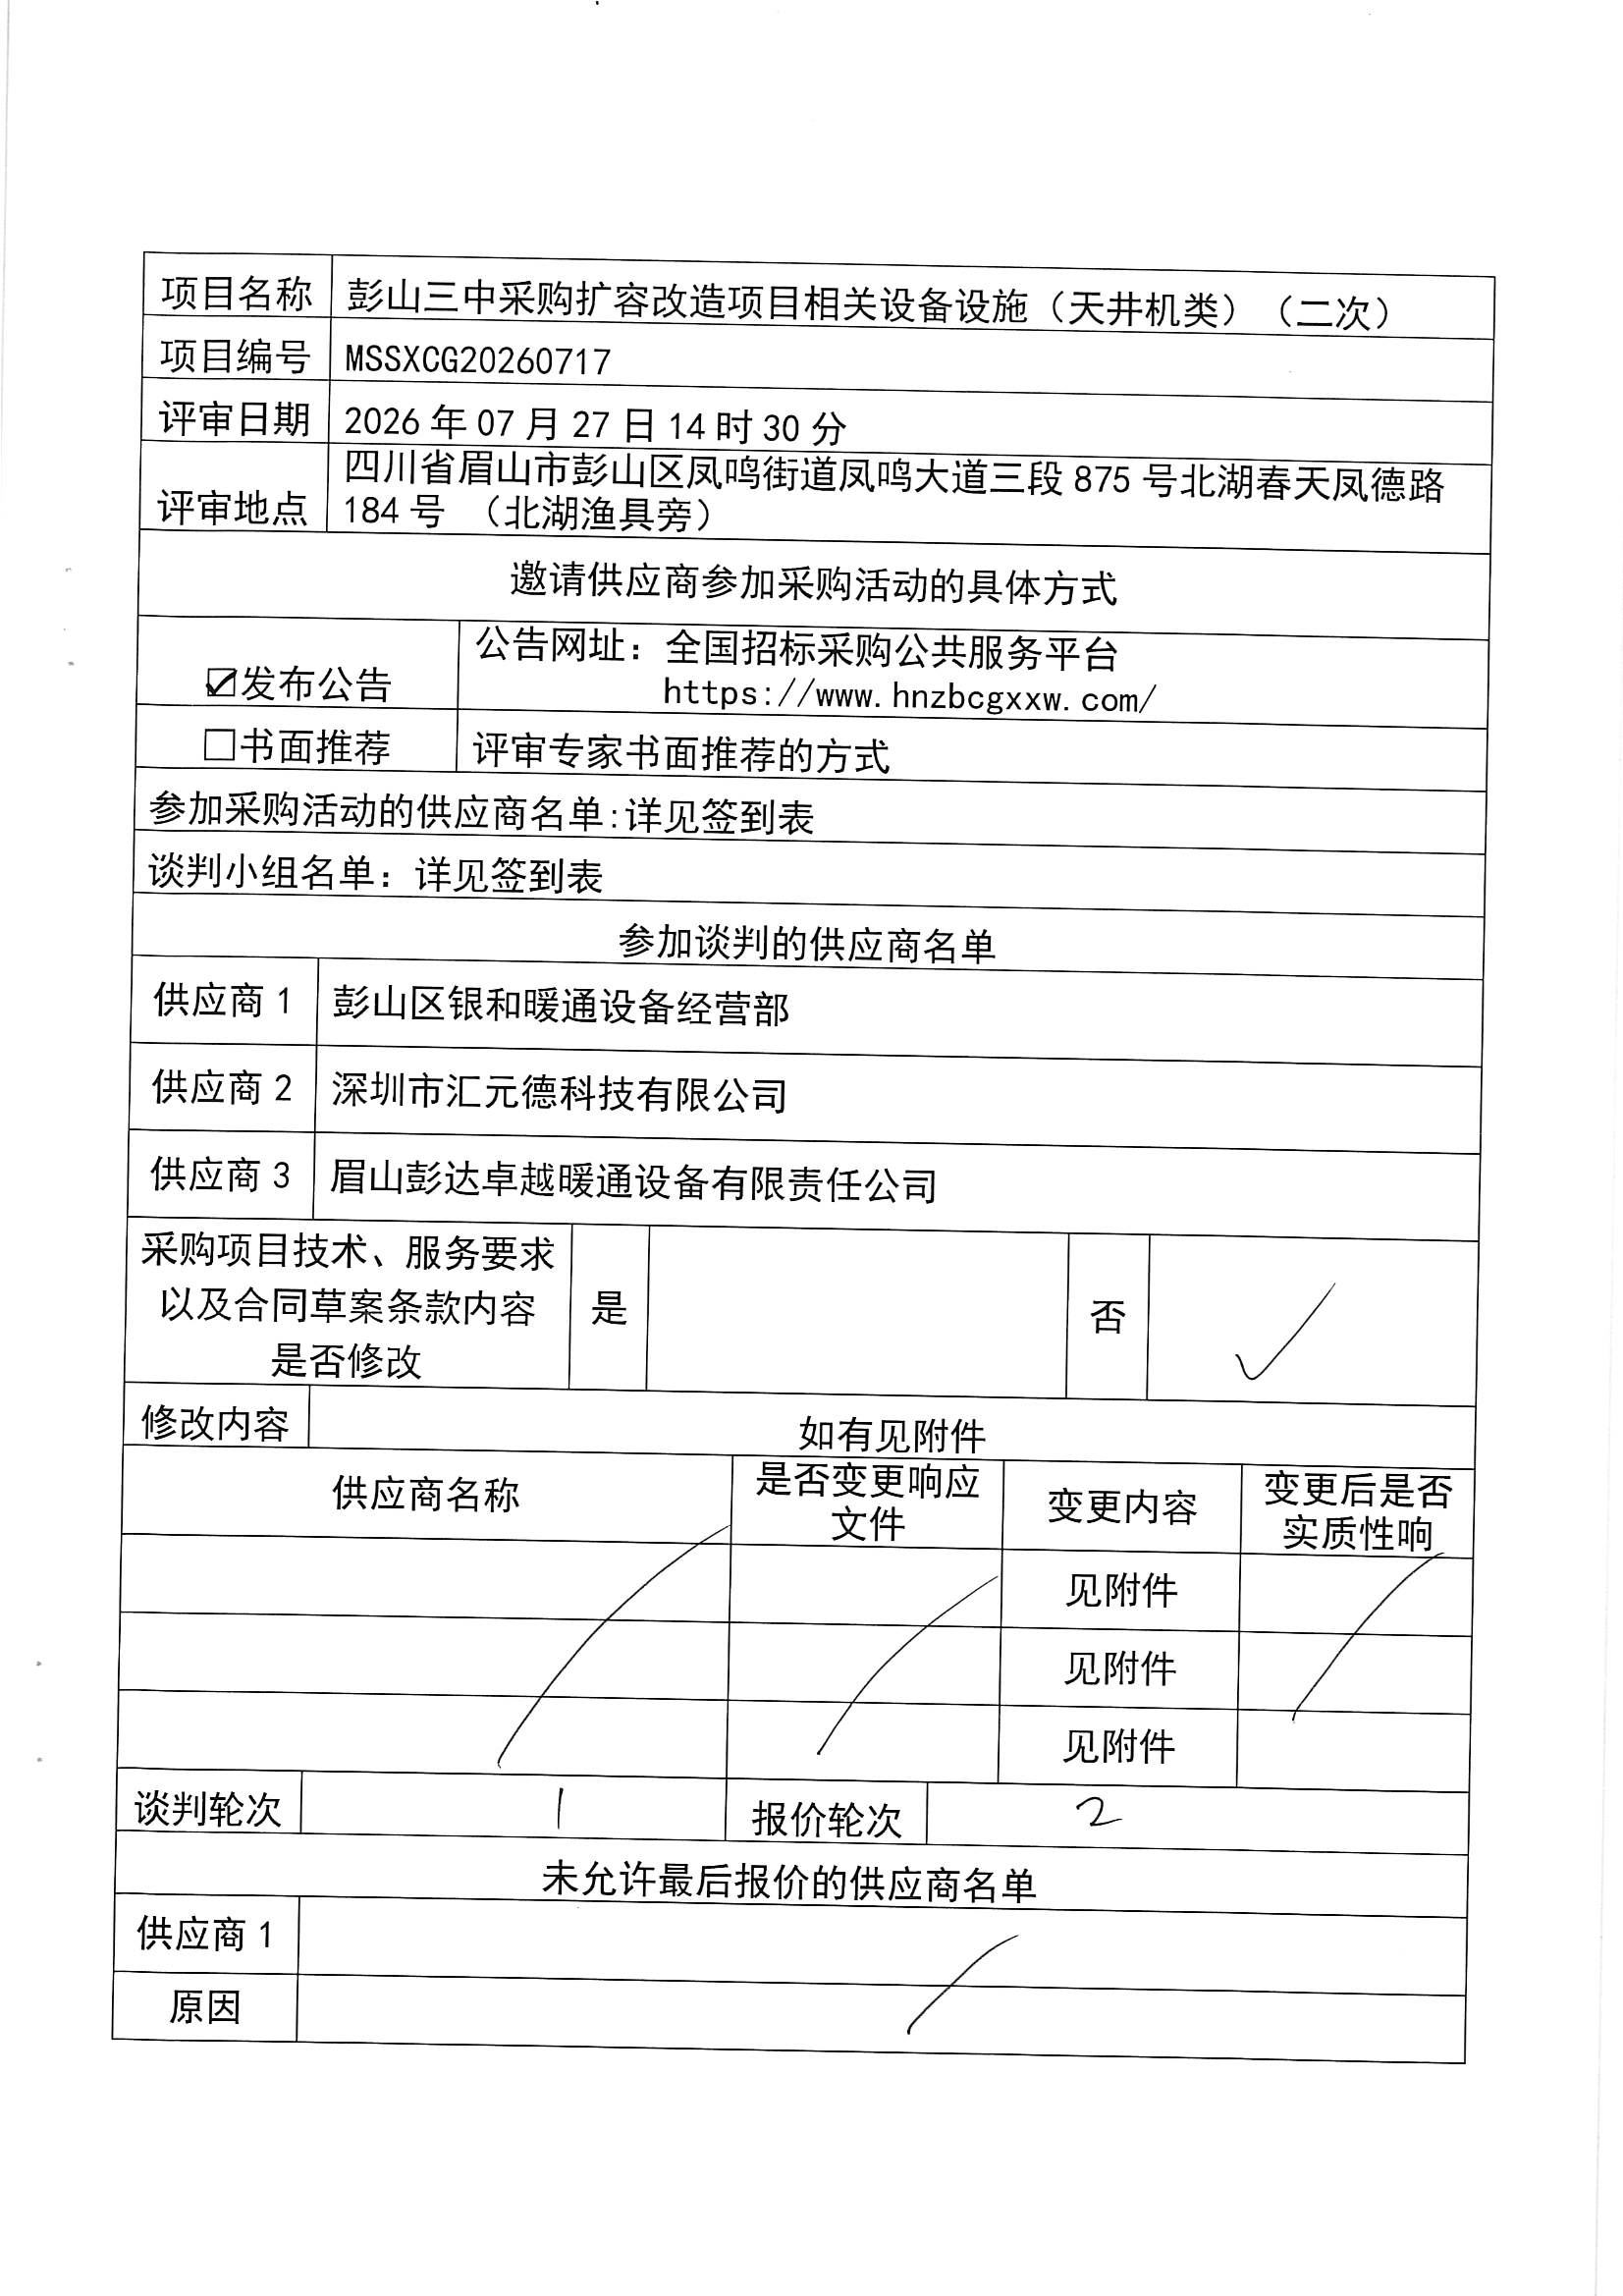 项目名称 彭山三中采购扩容改造项目相关设备设施（天井机类）（二次）
项目编号 MSSXCG20260717
评审日期 2026 年 07 月 27 日 14 时 30 分
评审地点 四川省眉山市彭山区凤鸣街道凤鸣大道三段 875 号北湖春天凤德路
184 号 （北湖渔具旁）
邀请供应商参加采购活动的具体方式
☑发布公告 公告网址：全国招标采购公共服务平台
https://www.hnzbcgxxw.com/
□书面推荐 评审专家书面推荐的方式
参加采购活动的供应商名单:详见签到表
谈判小组名单：详见签到表
参加谈判的供应商名单
供应商 1 彭山区银和暖通设备经营部
供应商 2 深圳市汇元德科技有限公司
供应商 3 眉山彭达卓越暖通设备有限责任公司
采购项目技术、服务要求
以及合同草案条款内容
是否修改
是 否 ✓
修改内容 如有见附件
供应商名称 是否变更响应
文件
变更内容 变更后是否
实质性响
见附件
见附件
见附件
谈判轮次 1 报价轮次 2
未允许最后报价的供应商名单
供应商 1
原因